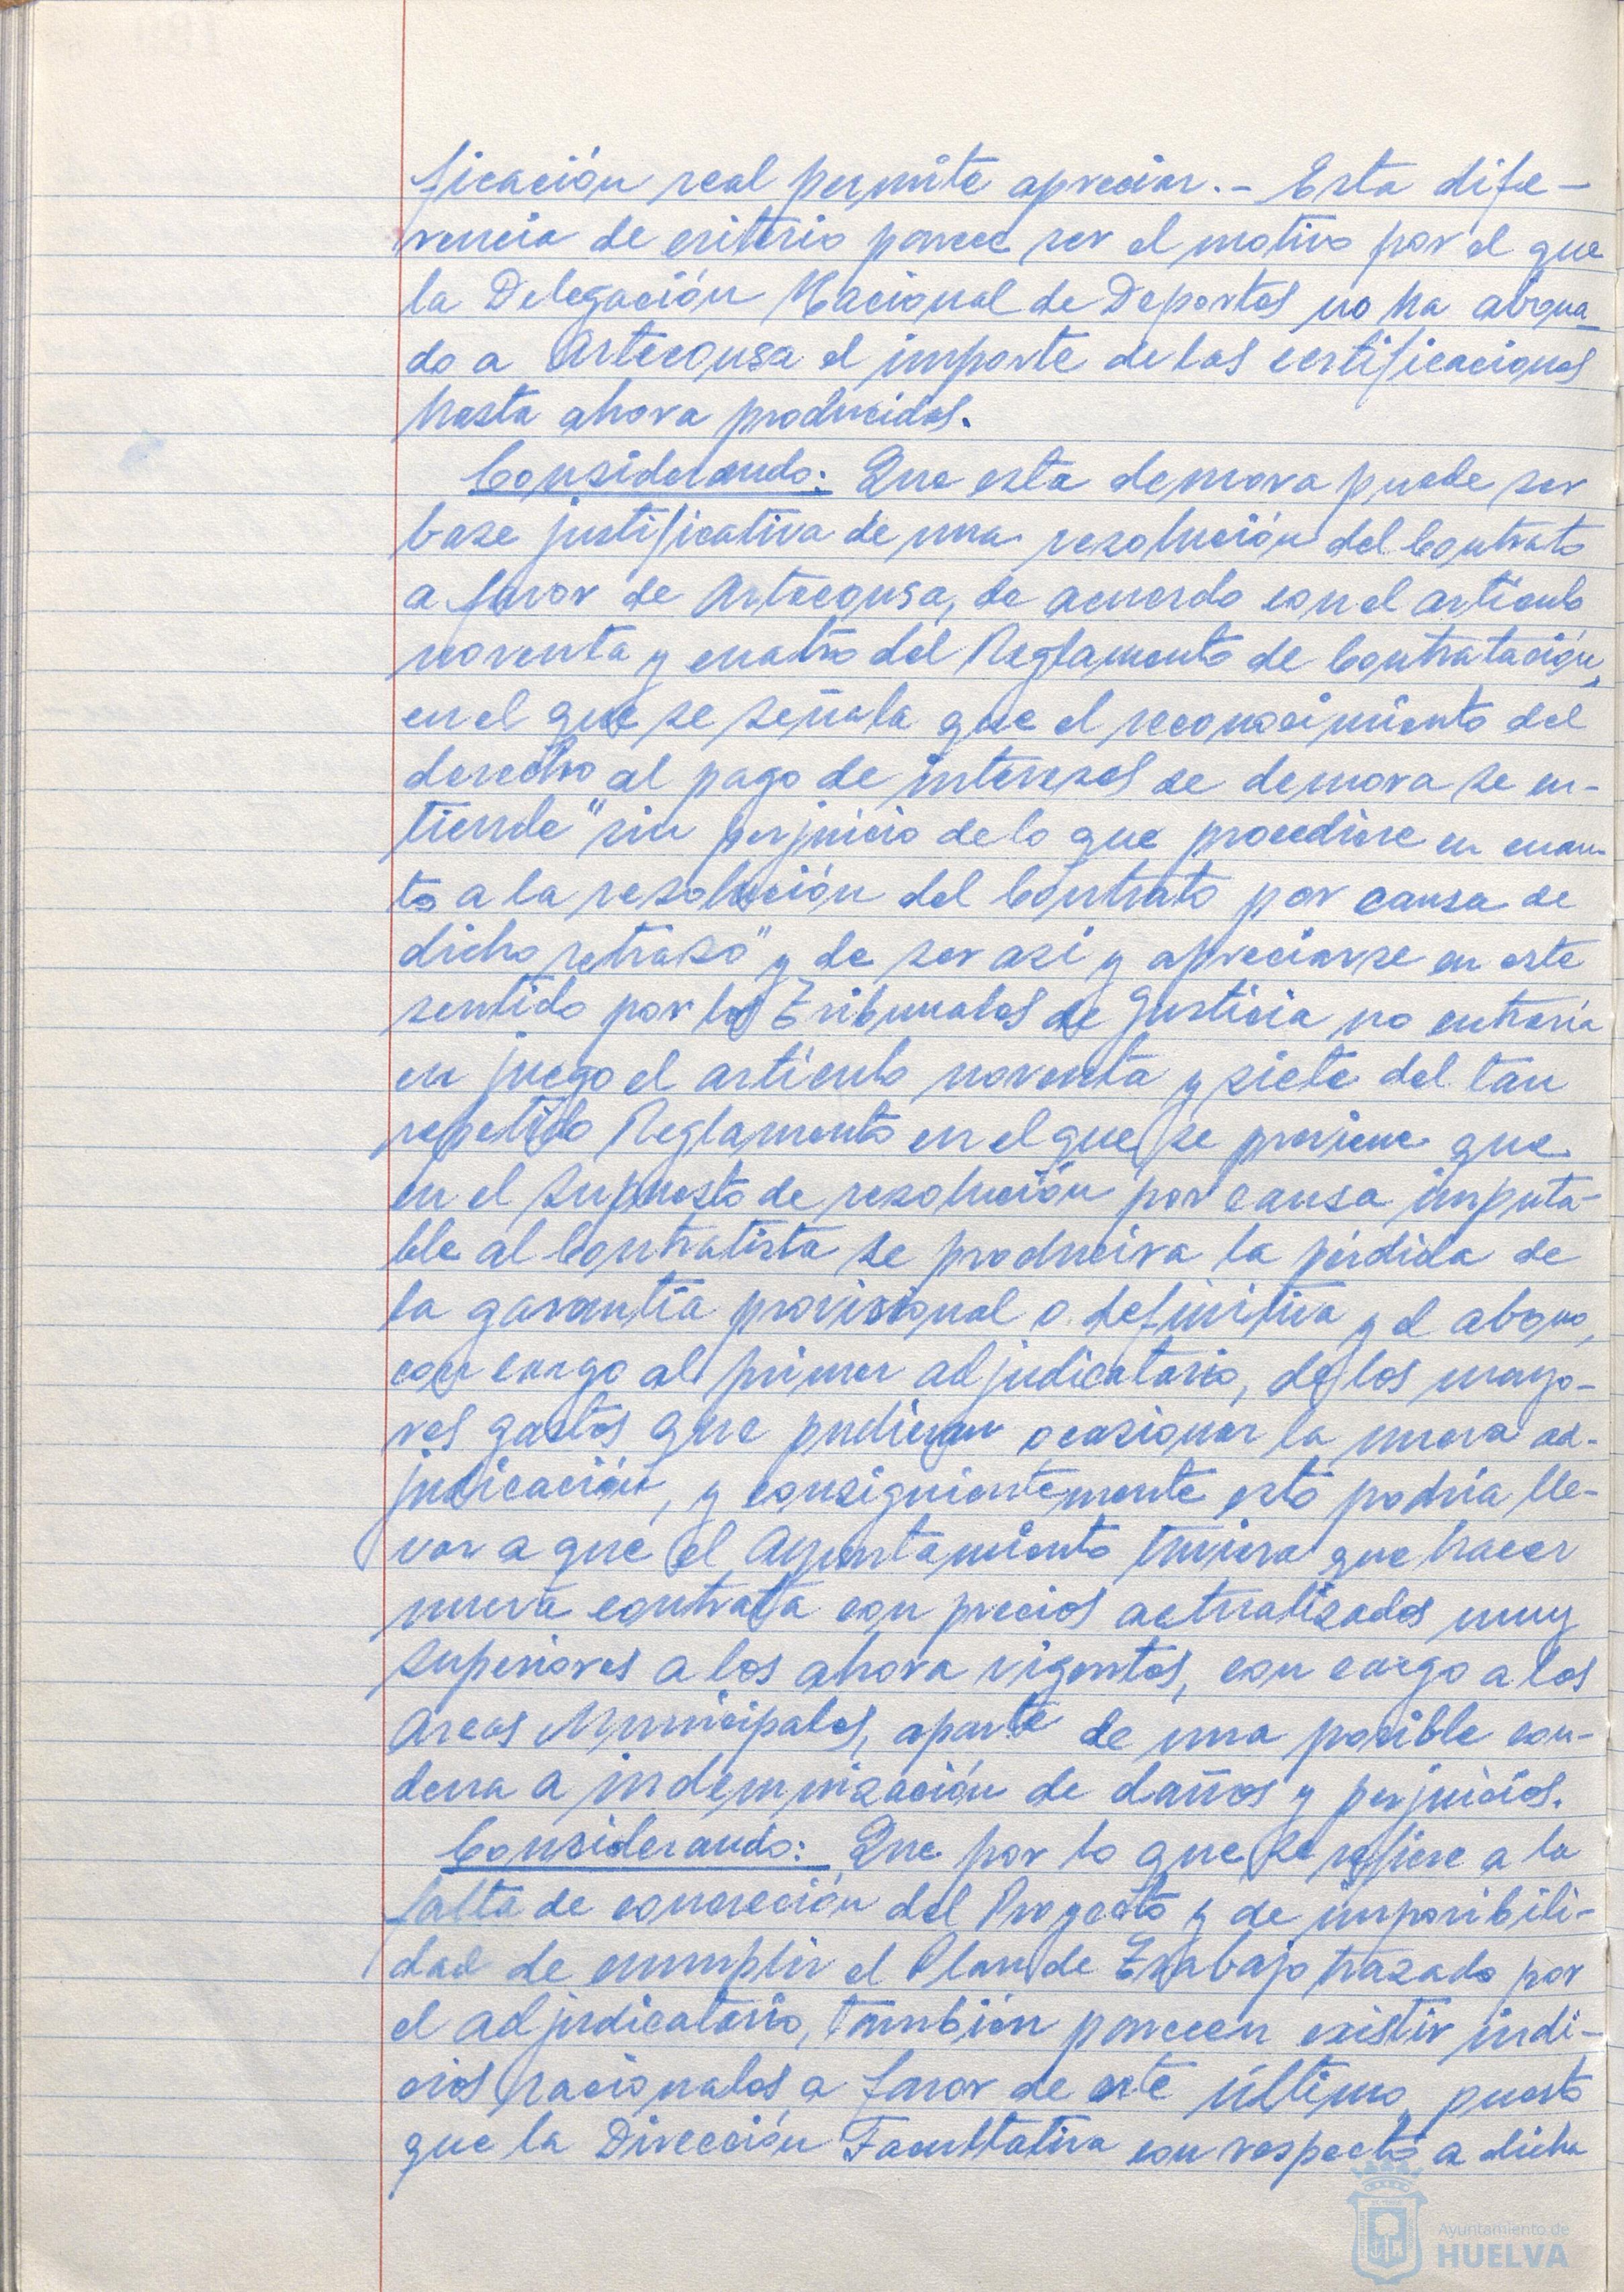 ficación real permite apreciar.- Esta dife-
rencia de criterio parece ser el motivo por el que
la Delegación Nacional de Deportes no ha abona-
do a Artecousa el importe de las certificaciones
hasta ahora producidas.
Considerando: Que esta demora puede ser
base justificativa de una resolución del Contrato
a favor de Artecousa, de acuerdo con el artículo
noventa y cuatro del Reglamento de Contratación,
en el que se señala que el reconocimiento del
derecho al pago de intereses de demora se en-
tiende "sin perjuicio de lo que procediere en cuan-
to a la resolución del Contrato por causa de
dicho retraso" y de ser asi y apreciarse en este
sentido por los Tribunales de Justicia no entraría
en juego el artículo noventa y siete del tan
repetido Reglamento en el que se previene que
en el supuesto de resolución por causa imputa-
ble al Contratista se producira la pérdida de
la garantía provisional o definitiva y el abono,
con cargo al primer adjudicatario, de los mayo-
res gastos que pudieran ocasionar la nueva ad-
judicación, y consiguientemente esto podría lle-
var a que el Ayuntamiento tuviera que hacer
nueva contrata con precios actualizados muy
superiores a los ahora vigentes, con cargo a los
Arcas Municipales, aparte de una posible con-
dena a indemnización de daños y perjuicios.
Considerando: Que por lo que se refiere a la
falta de concreción del Proyecto y de imposibili-
dad de cumplir el Plan de Trabajo trazado por
el adjudicatario, también parecen existir indi-
cios racionales a favor de este último, puesto
que la Dirección Facultativa con respecto a dicha
Ayuntamiento de
HUELVA